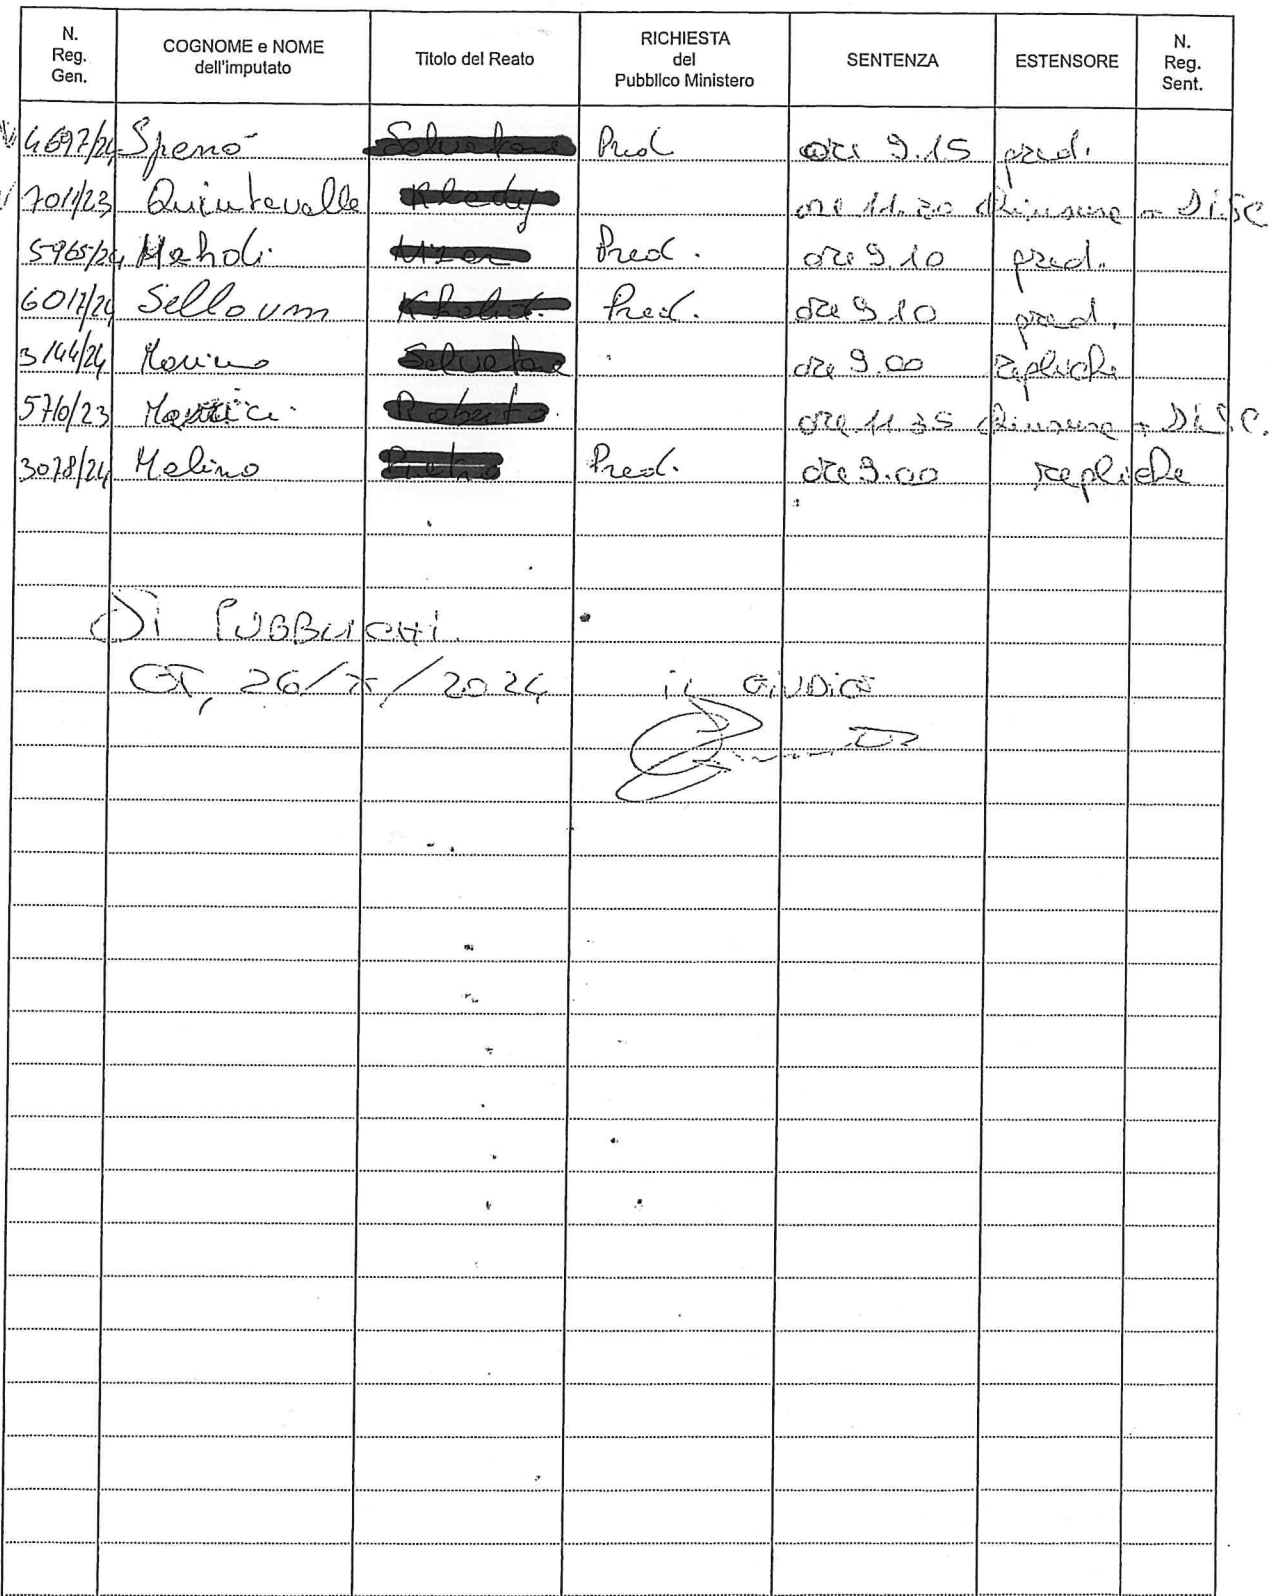 N. Reg. Gen. COGNOME e NOME dell'imputato Titolo del Reato RICHIESTA del Pubblico Ministero SENTENZA ESTENSORE N. Reg. Sent.
4697/24 Spanò Pred ore 9.15 pred.
7011/23 Quintavalle ore 11.20 chiusura = DiSC
5965/24 Mahdi Pred. ore 9.10 pred.
6017/24 Selloum Pred. ore 9.10 pred.
3144/24 ore 9.00 repliche
5710/23 ore 11.35 chiusura = DiSC.
3078/24 Melino Pred. ore 9.00 repliche
Si PUBBLICHI
CT, 26/ /2024 il GIUDICE